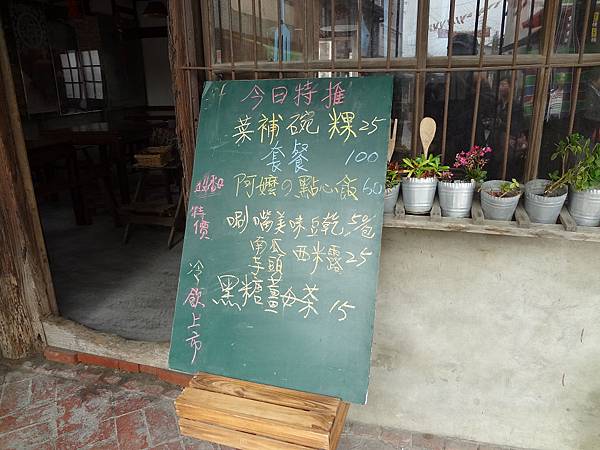 今日特推
菜補碗粿25
套餐 100
阿嬤の點心飯60
特價
唰嘴美味豆乾,5包
南瓜
芋頭 西米露25
黑糖薑母茶 15
冷飲上市